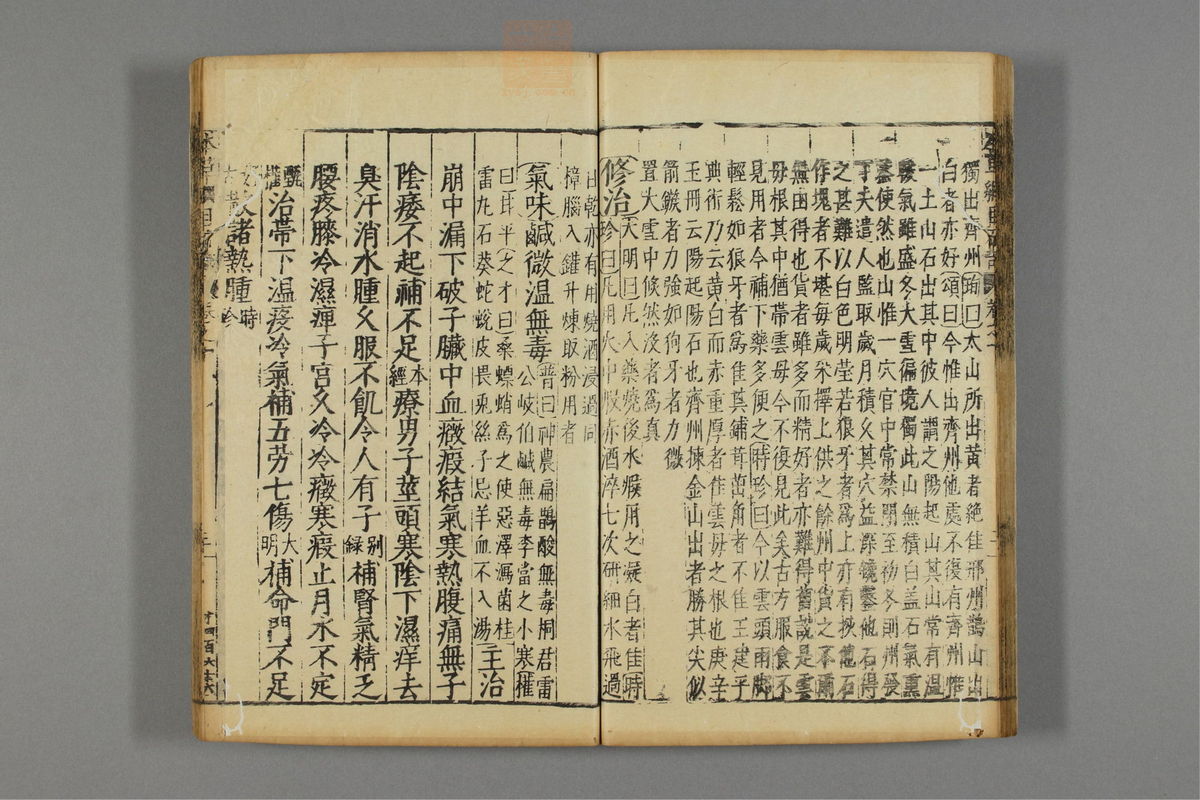 獨出齊州恂曰太山所出黄者絶佳邢州鵲山出
白者亦好頌曰今惟出齊州他處不復有齊州惟
一土山石出其中彼人謂之陽起山其山常有溫
暖氣雖盛冬大雪徧境獨此山無積白盖石氣熏
蒸使然也山惟一穴官中常禁閉至初冬則州發
丁夫遣人監取歲月積久其穴益深鑱鑿他石得
之甚難以白色明瑩若狼牙者爲上亦有挾他石
作塊者不堪每歲采擇上供之餘州中貨之不爾
無由得也貨者雖多而精好者亦難得舊說是雲
母根其中猶帶雲母今不復見此矣古方服食不
見用者今補下藥多使之時珍曰今以雲頭雨脚
輕鬆如狼牙者爲佳其鋪茸茁角者不佳王建平
典術乃云黄白而赤重厚者佳雲母之根也庚辛
玉冊云陽起陽石也齊州揀金山出者勝其尖似
箭鏃者力強如狗牙者力微
置大雪中倐然没者爲真
修治大明曰凡入藥燒後水煅用之凝白者佳時
珍曰凡用火中煅赤酒淬七次研細水飛過
日乾亦有用燒酒浸過同
樟腦入鑵升煉取粉用者
氣味鹹微温無毒普曰神農扁鵲酸無毒桐君雷
公岐伯鹹無毒李當之小寒權
曰甘平之才曰桑螵蛸爲之使惡澤瀉菌桂
雷丸石葵蛇蛻皮畏兎絲子忌羊血不入湯主治
崩中漏下破子臓中血癥瘕結氣寒熱腹痛無子
陰痿不起補不足本經療男子莖頭寒陰下濕痒去
臭汗消水腫久服不飢令人有子别録補腎氣精乏
腰疼膝冷濕痺子宮久冷冷癥寒瘕止月水不定
甄權治帶下温疫冷氣補五劳七傷大明補命門不足
散諸熱腫時珍